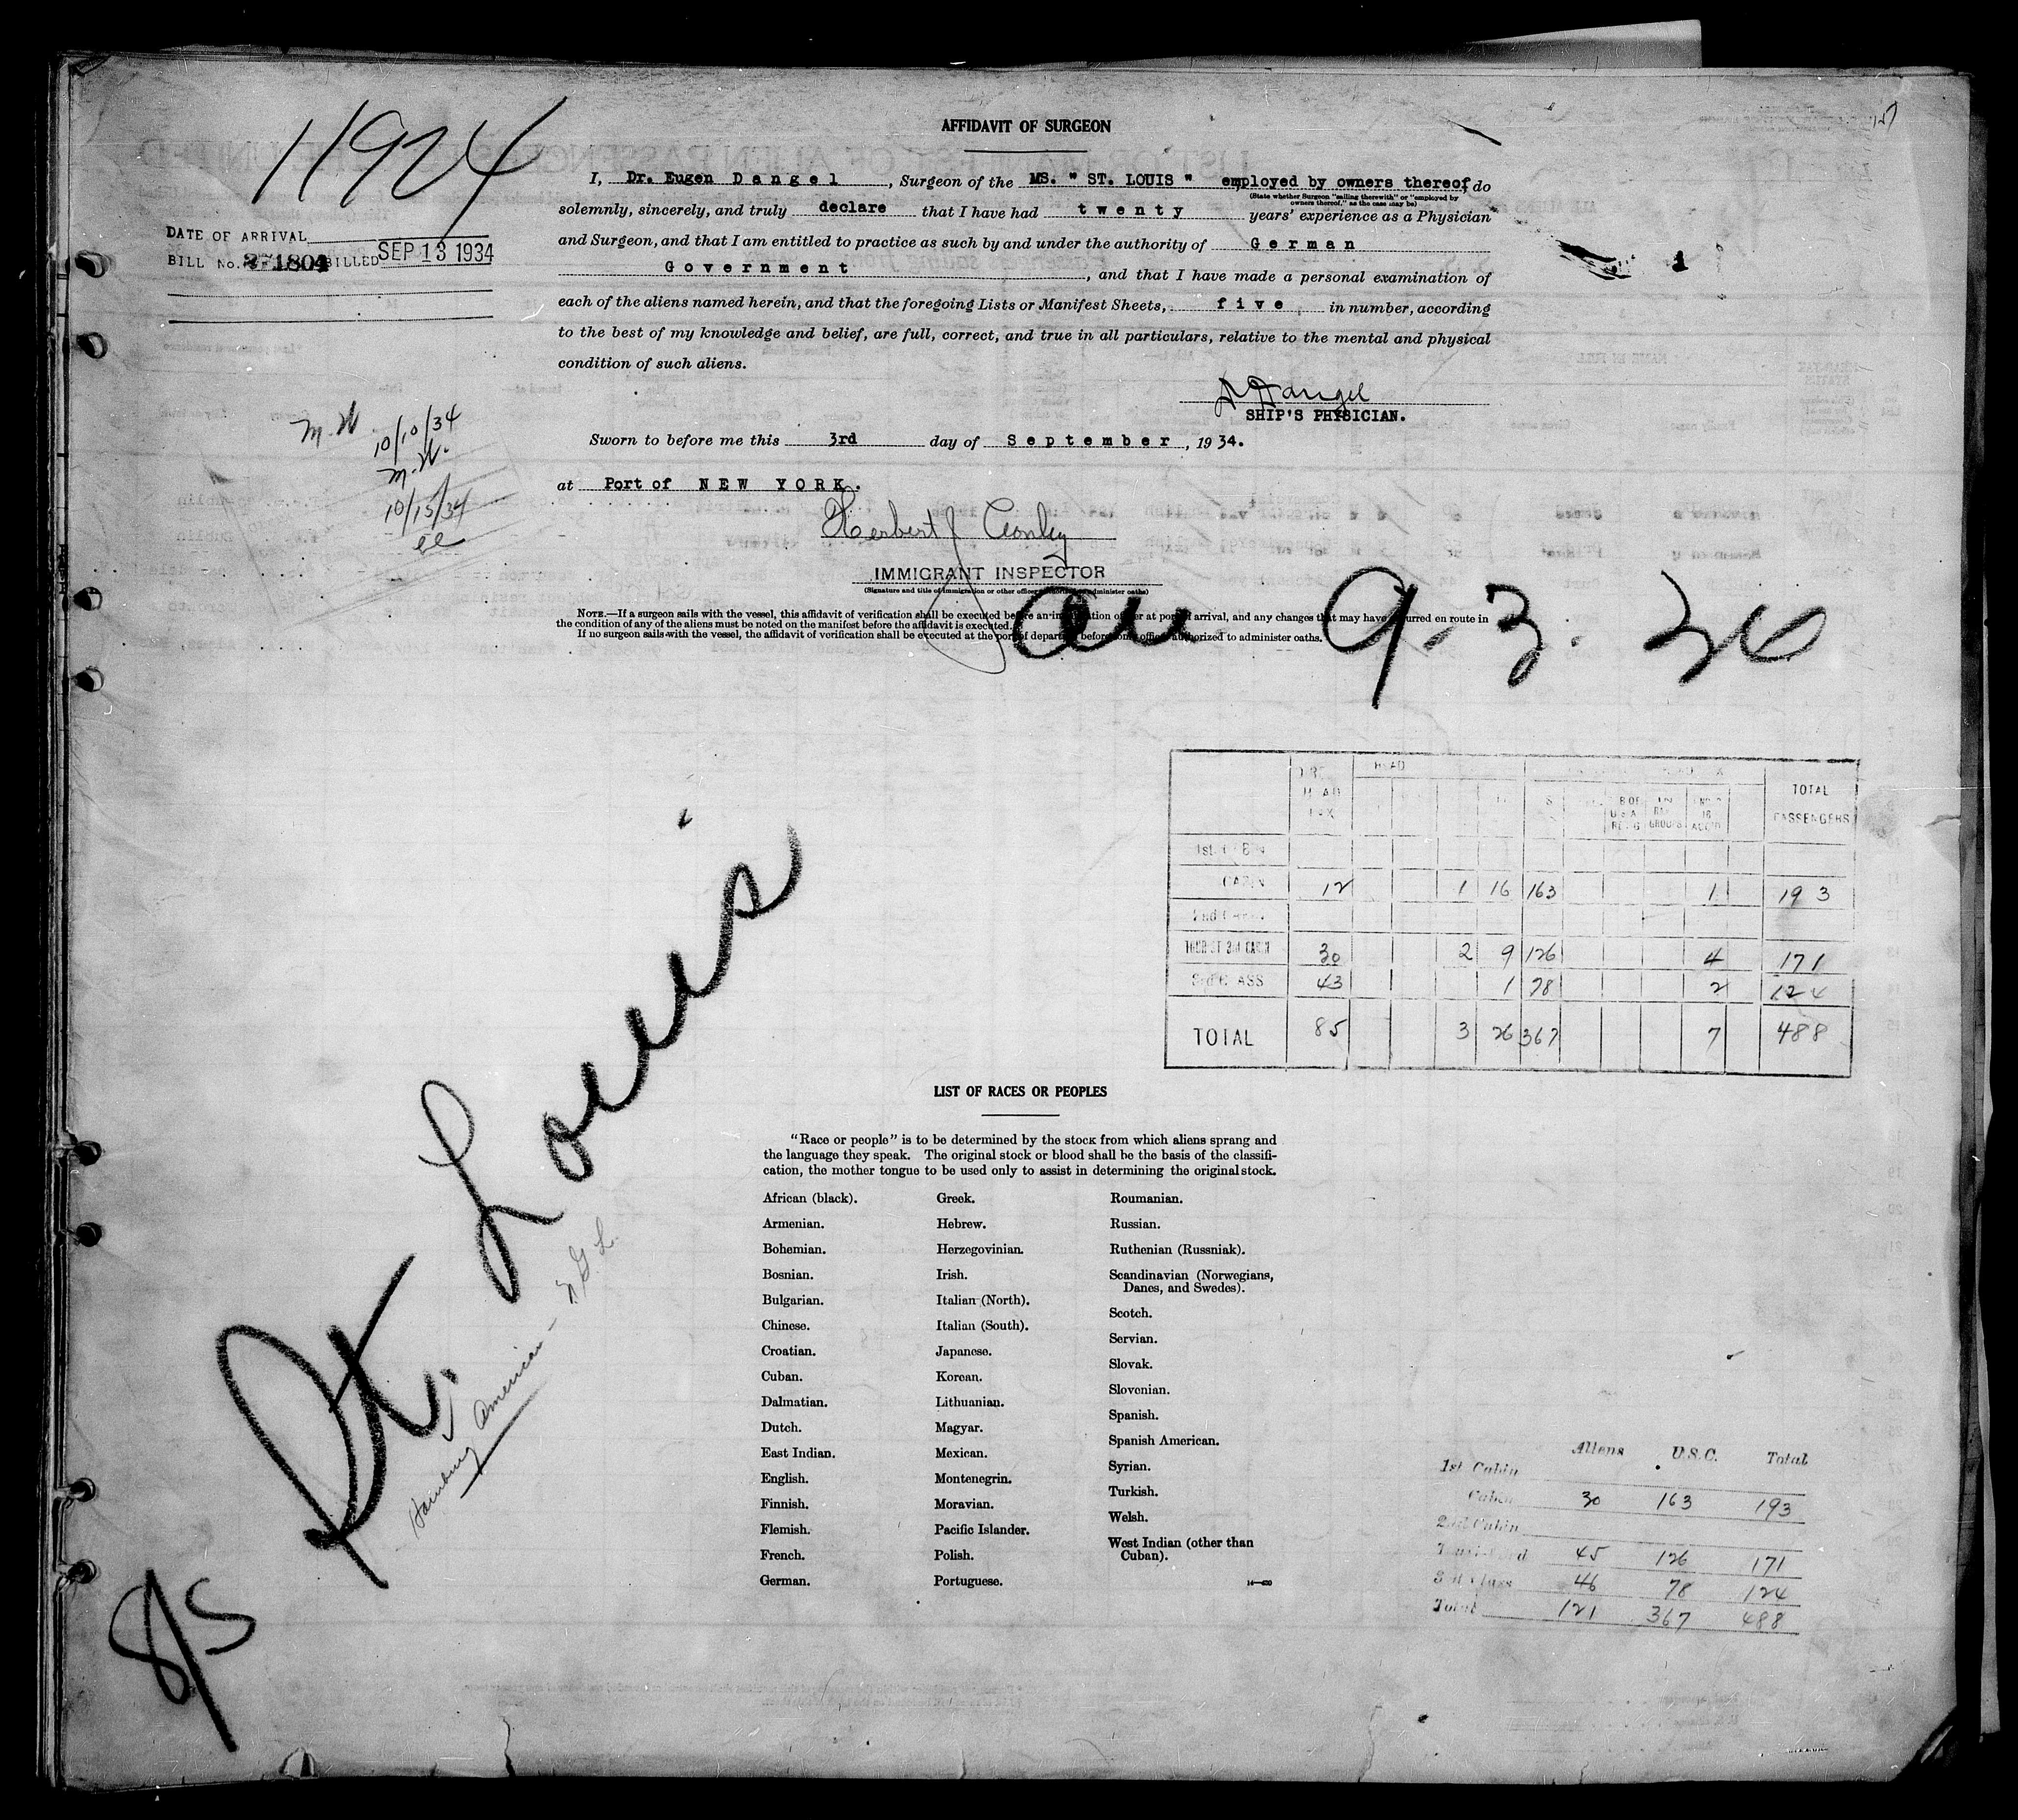 11924
AFFIDAVIT OF SURGEON
I, Dr. Eugen Dangel, Surgeon of the MS. "ST. LOUIS" employed by owners thereof, do
(State whether Surgeon "sailing therewith" or "employed by
owners thereof," as the case may be)
solemnly, sincerely, and truly declare that I have had twenty years' experience as a Physician
and Surgeon, and that I am entitled to practice as such by and under the authority of German
Government, and that I have made a personal examination of
each of the aliens named herein, and that the foregoing Lists or Manifest Sheets, five, in number, according
to the best of my knowledge and belief, are full, correct, and true in all particulars, relative to the mental and physical
condition of such aliens.
DATE OF ARRIVAL
BILL No. 1804 BILLED SEP 13 1934
1
Dangel
SHIP'S PHYSICIAN.
Sworn to before me this 3rd day of September, 1934.
at Port of NEW YORK.
M.W.
10/10/34
M.W.
10/15/34
ee
Herbert J Conley
IMMIGRANT INSPECTOR
(Signature and title of immigration or other officer authorized to administer oaths)
NOTE.—If a surgeon sails with the vessel, this affidavit of verification shall be executed before an immigration officer at port of arrival, and any changes that may have occurred en route in
the condition of any of the aliens must be noted on the manifest before the affidavit is executed.
If no surgeon sails with the vessel, the affidavit of verification shall be executed at the port of departure before some officer authorized to administer oaths.
9-3.34
HEAD
TOTAL
PASSENGERS
CABIN 12 1 16 163 1 193
TOURIST 3rd CABIN 30 2 9 126 4 171
3rd CLASS 43 1 78 2 124
TOTAL 85 3 26 367 7 488
St. Louis
Hamburg American - N.G.L.
8/5
LIST OF RACES OR PEOPLES
"Race or people" is to be determined by the stock from which aliens sprang and
the language they speak. The original stock or blood shall be the basis of the classifi-
cation, the mother tongue to be used only to assist in determining the original stock.
African (black).
Armenian.
Bohemian.
Bosnian.
Bulgarian.
Chinese.
Croatian.
Cuban.
Dalmatian.
Dutch.
East Indian.
English.
Finnish.
Flemish.
French.
German.
Greek.
Hebrew.
Herzegovinian.
Irish.
Italian (North).
Italian (South).
Japanese.
Korean.
Lithuanian.
Magyar.
Mexican.
Montenegrin.
Moravian.
Pacific Islander.
Polish.
Portuguese.
Roumanian.
Russian.
Ruthenian (Russniak).
Scandinavian (Norwegians,
Danes, and Swedes).
Scotch.
Servian.
Slovak.
Slovenian.
Spanish.
Spanish American.
Syrian.
Turkish.
Welsh.
West Indian (other than
Cuban).
Aliens U.S.C. Total
1st Cabin
Cabin 30 163 193
2nd Cabin
Tourist 3rd 45 126 171
3rd Class 46 78 124
Total 121 367 488